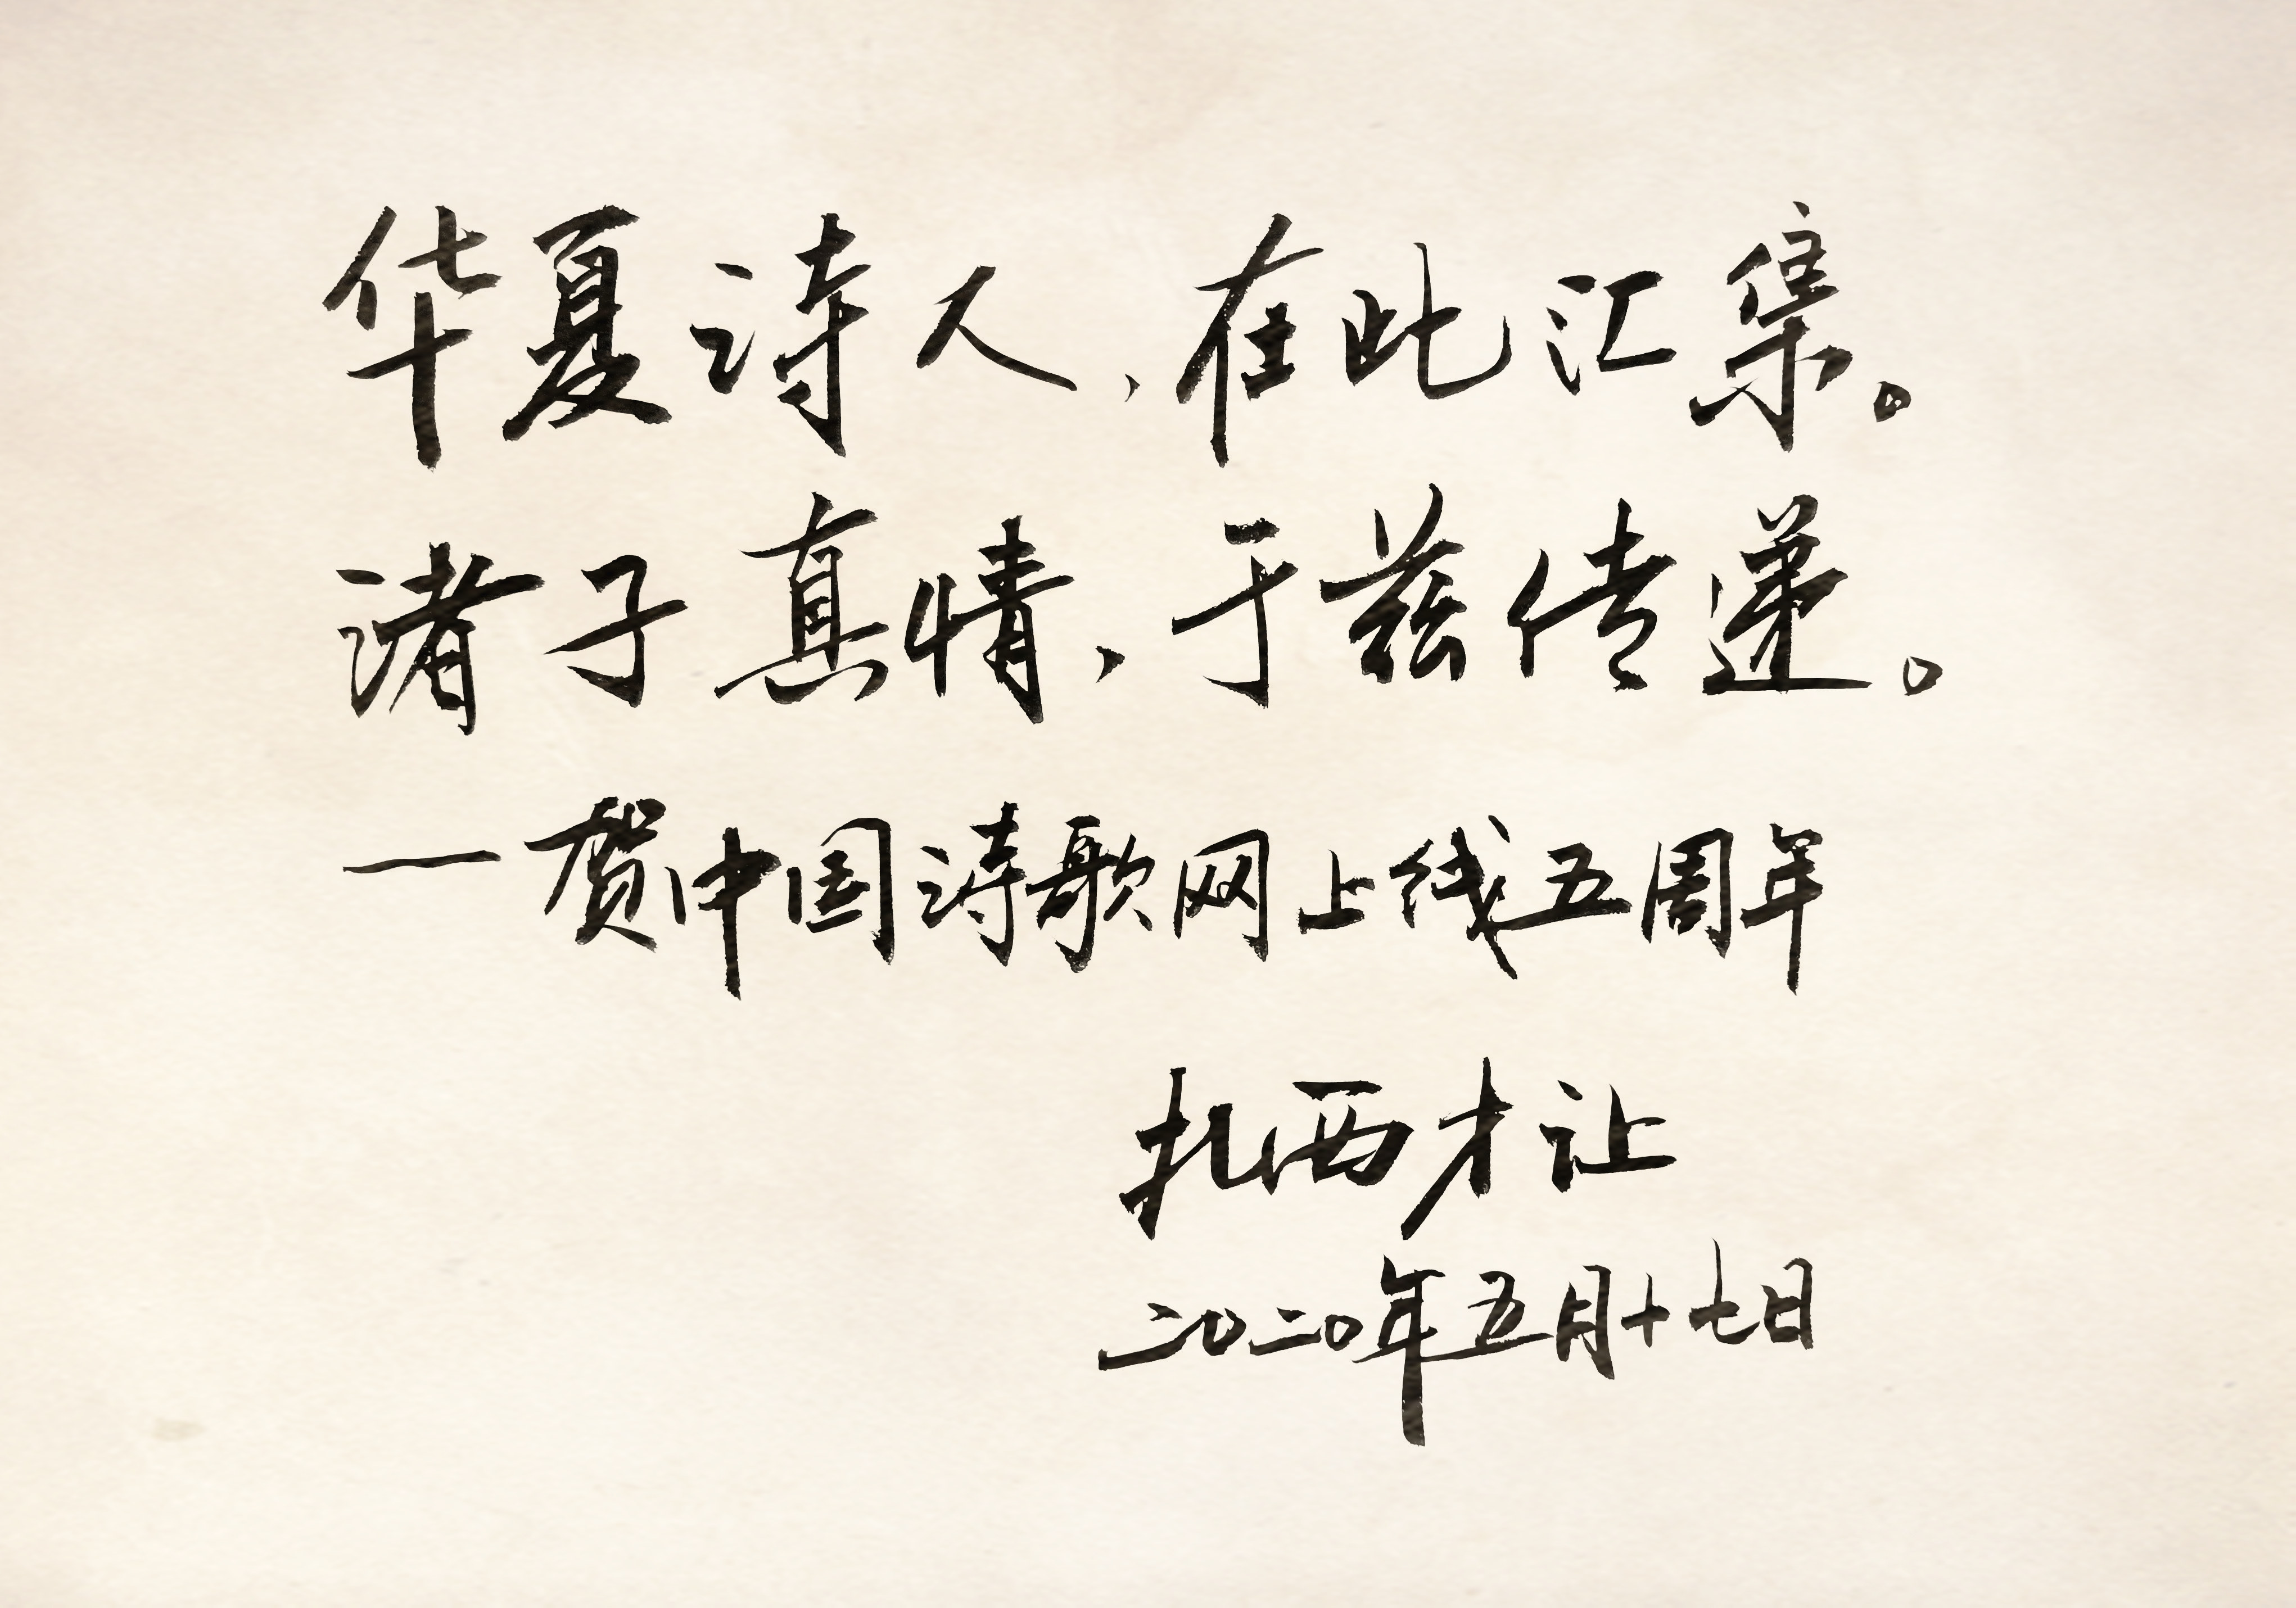 华夏诗人，在此汇集。
渚子真情，于兹传递。
—贺中国诗歌网上线五周年
扎西才让
二〇二〇年五月十七日